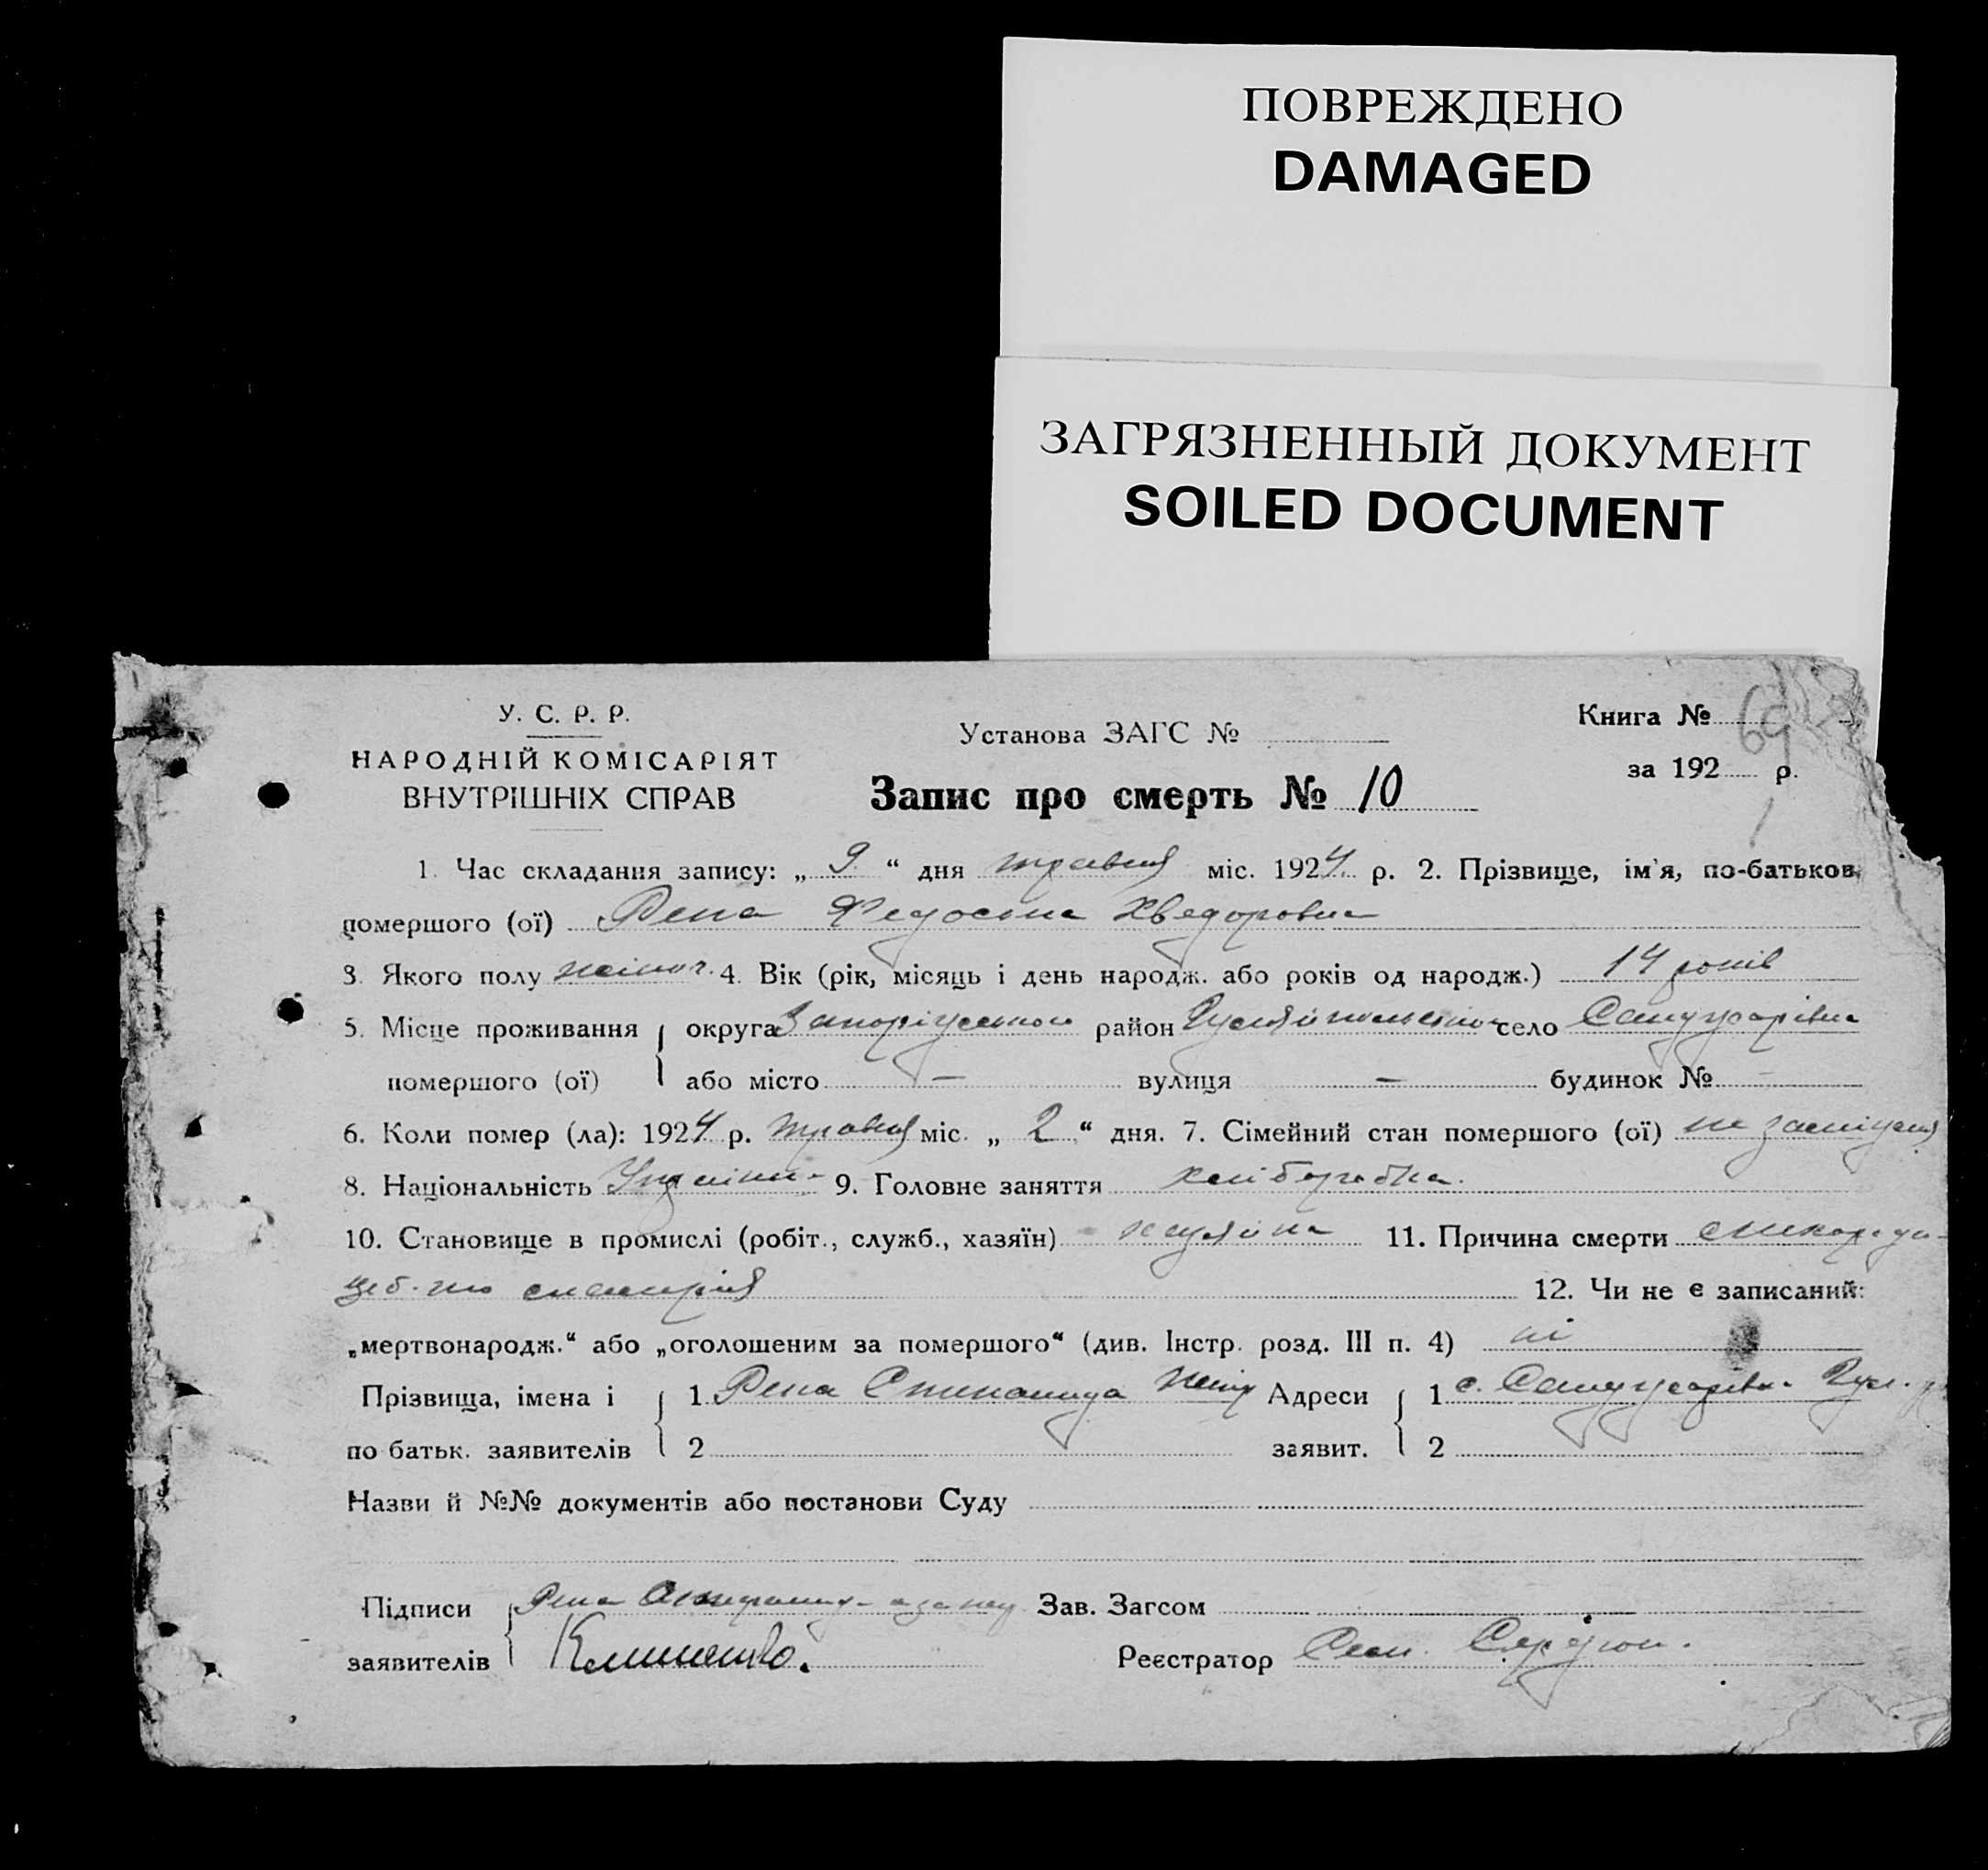 ПОВРЕЖДЕНО
DAMAGED
ЗАГРЯЗНЕННЫЙ ДОКУМЕНТ
SOILED DOCUMENT
У. С. Р. Р.
НАРОДНІЙ КОМІСАРІЯТ
ВНУТРІШНІХ СПРАВ
Установа ЗАГС №
Запис про смерть № 10
Книга №
69
за 192 р.
1. Час складання запису: „ 9 “ дня травня міс. 1924 р. 2. Прізвище, ім'я, по-батьков.
помершого (ої) Репа Федосина Хведоровна
3. Якого полу жіноч. 4. Вік (рік, місяць і день народж. або років од народж.) 14 років
5. Місце проживання округа район село
помершого (ої) або місто — вулиця — будинок №
6. Коли помер (ла): 1924 р. травня міс. „ 2 “ дня. 7. Сімейний стан помершого (ої) не заміжня
8. Національність 9. Головне заняття хліборобка.
10. Становище в промислі (робіт., служб., хазяїн) 11. Причина смерти
12. Чи не є записаний:
„мертвонародж.“ або „оголошеним за помершого“ (див. Інстр. розд. III п. 4) ні
Прізвища, імена і 1 Репа Адреси 1 с.
по батьк. заявителів 2 заявит. 2
Назви й №№ документів або постанови Суду
Підписи Репа Зав. Загсом
заявителів Реєстратор